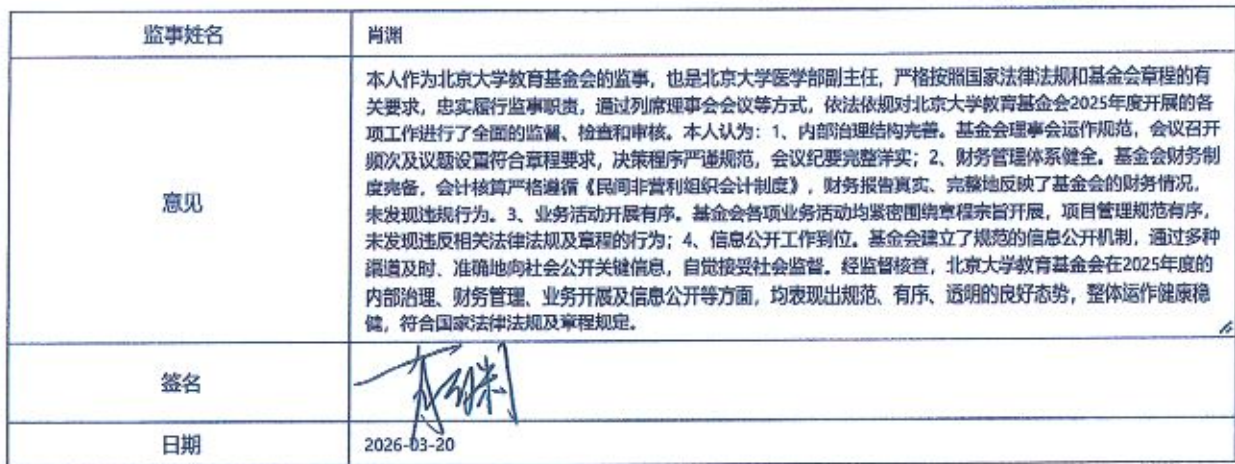 监事姓名
肖渊
意见
本人作为北京大学教育基金会的监事，也是北京大学医学部副主任，严格按照国家法律法规和基金会章程的有
关要求，忠实履行监事职责，通过列席理事会会议等方式，依法依规对北京大学教育基金会2025年度开展的各
项工作进行了全面的监督、检查和审核。本人认为：1、内部治理结构完善。基金会理事会运作规范，会议召开
频次及议题设置符合章程要求，决策程序严谨规范，会议纪要完整详实；2、财务管理体系健全。基金会财务制
度完备，会计核算严格遵循《民间非营利组织会计制度》，财务报告真实、完整地反映了基金会的财务情况，
未发现违规行为。3、业务活动开展有序。基金会各项业务活动均紧密围绕章程宗旨开展，项目管理规范有序，
未发现违反相关法律法规及章程的行为；4、信息公开工作到位。基金会建立了规范的信息公开机制，通过多种
渠道及时、准确地向社会公开关键信息，自觉接受社会监督。经监督核查，北京大学教育基金会在2025年度的
内部治理、财务管理、业务开展及信息公开等方面，均表现出规范、有序、透明的良好态势，整体运作健康稳
健，符合国家法律法规及章程规定。
签名
肖渊
日期
2026-03-20